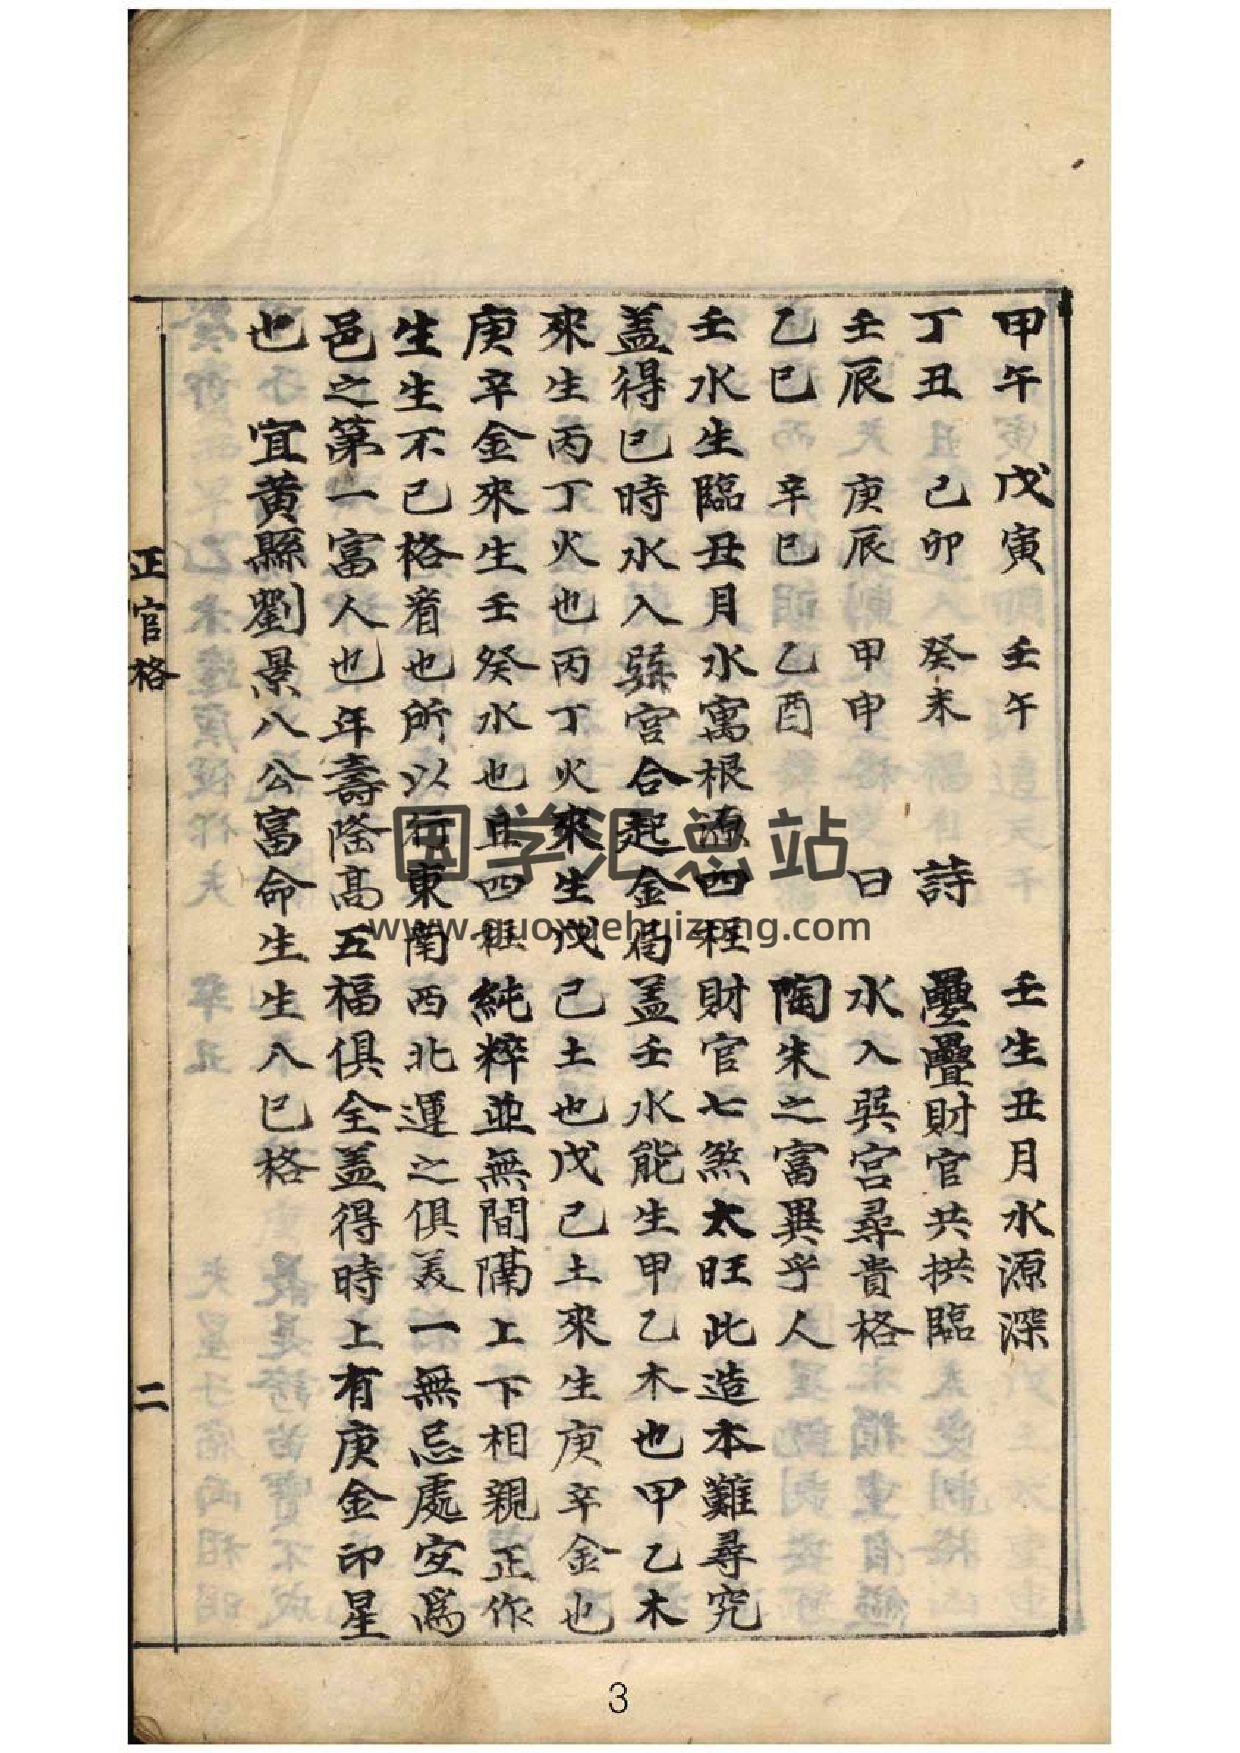 甲午 戊寅 壬午 壬生丑月水源深
丁丑 己卯 癸未 詩 疊疊財官共拱臨
壬辰 庚辰 甲申 曰 水入巽宮尋貴格
乙巳 辛巳 乙酉 陶朱之富異乎人
壬水生臨丑月水寓根源四柱財官七煞太旺此造本難尋究
蓋得巳時水入巽宮合起金局蓋壬水能生甲乙木也甲乙木
來生丙丁火也丙丁火來生戊己土也戊己土來生庚辛金也
庚辛金來生壬癸水也且四柱純粹並無間隔上下相親正作
生生不已格看也所以行東南西北運之俱美一無忌處安為
邑之第一富人也年壽隆高五福俱全蓋得時上有庚金印星
也 宜黃縣劉景八公富命生生八巳格
正官格 二
国学汇总站
www.guoxuehuizong.com
3